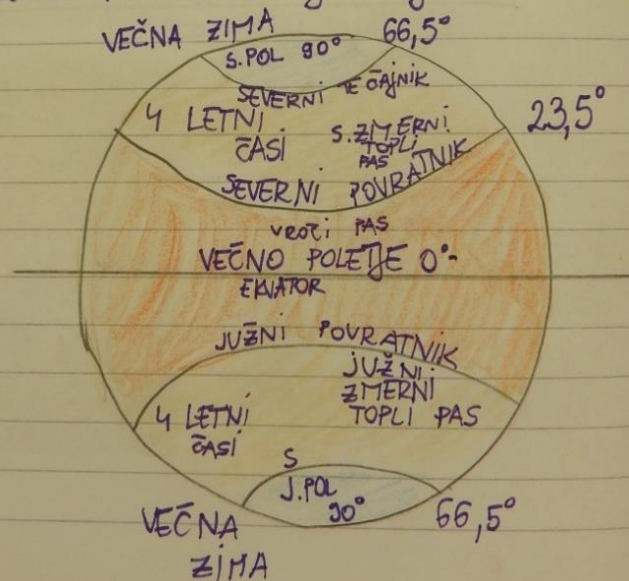 VEČNA ZIMA 66,5°
S. POL 90°
SEVERNI TEČAJNIK
4 LETNI ČASI
23,5°
S. ZMERNI
TOPLI
PAS
SEVERNI POVRATNIK
VROČI PAS
VEČNO POLETJE 0°
EKVATOR
JUŽNI POVRATNIK
JUŽNI
ZMERNI
TOPLI PAS
4 LETNI
ČASI
S
J. POL
90°
66,5°
VEČNA
ZIMA